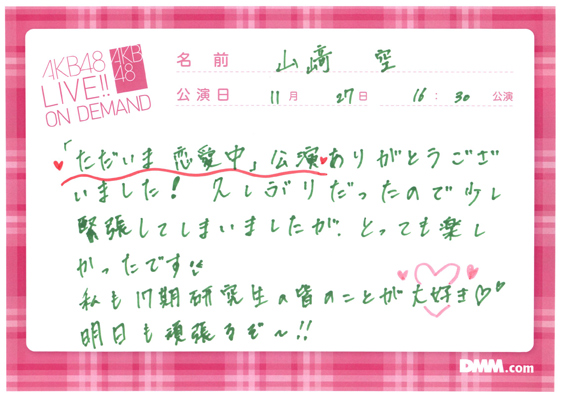 AKB48
LIVE!!
ON DEMAND
AKB
48
名前 山﨑 空
公演日 11月 27日 16:30 公演
「ただいま 恋愛中」公演ありがとうござ
いました! 久しぶりだったので少し
緊張してしまいましたが、とっても楽し
かったです!!
私も17期研究生の皆のことが大好き♡♡
明日も頑張るぞ〜!!
DMM.com